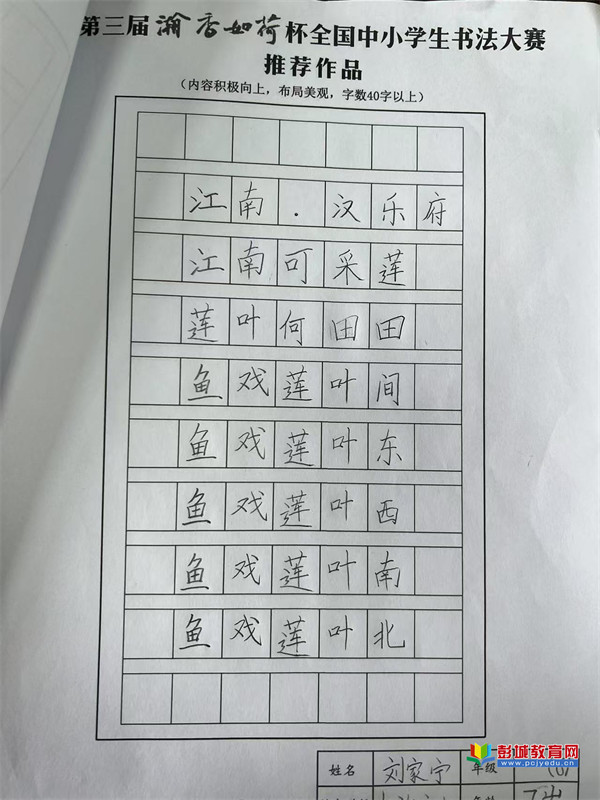 第三届瀚香如荷杯全国中小学生书法大赛
推荐作品
（内容积极向上，布局美观，字数40字以上）
江南.汉乐府
江南可采莲
莲叶何田田
鱼戏莲叶间
鱼戏莲叶东
鱼戏莲叶西
鱼戏莲叶南
鱼戏莲叶北
姓名 刘家宁 年级
彭城教育网
www.pcjyedu.cn